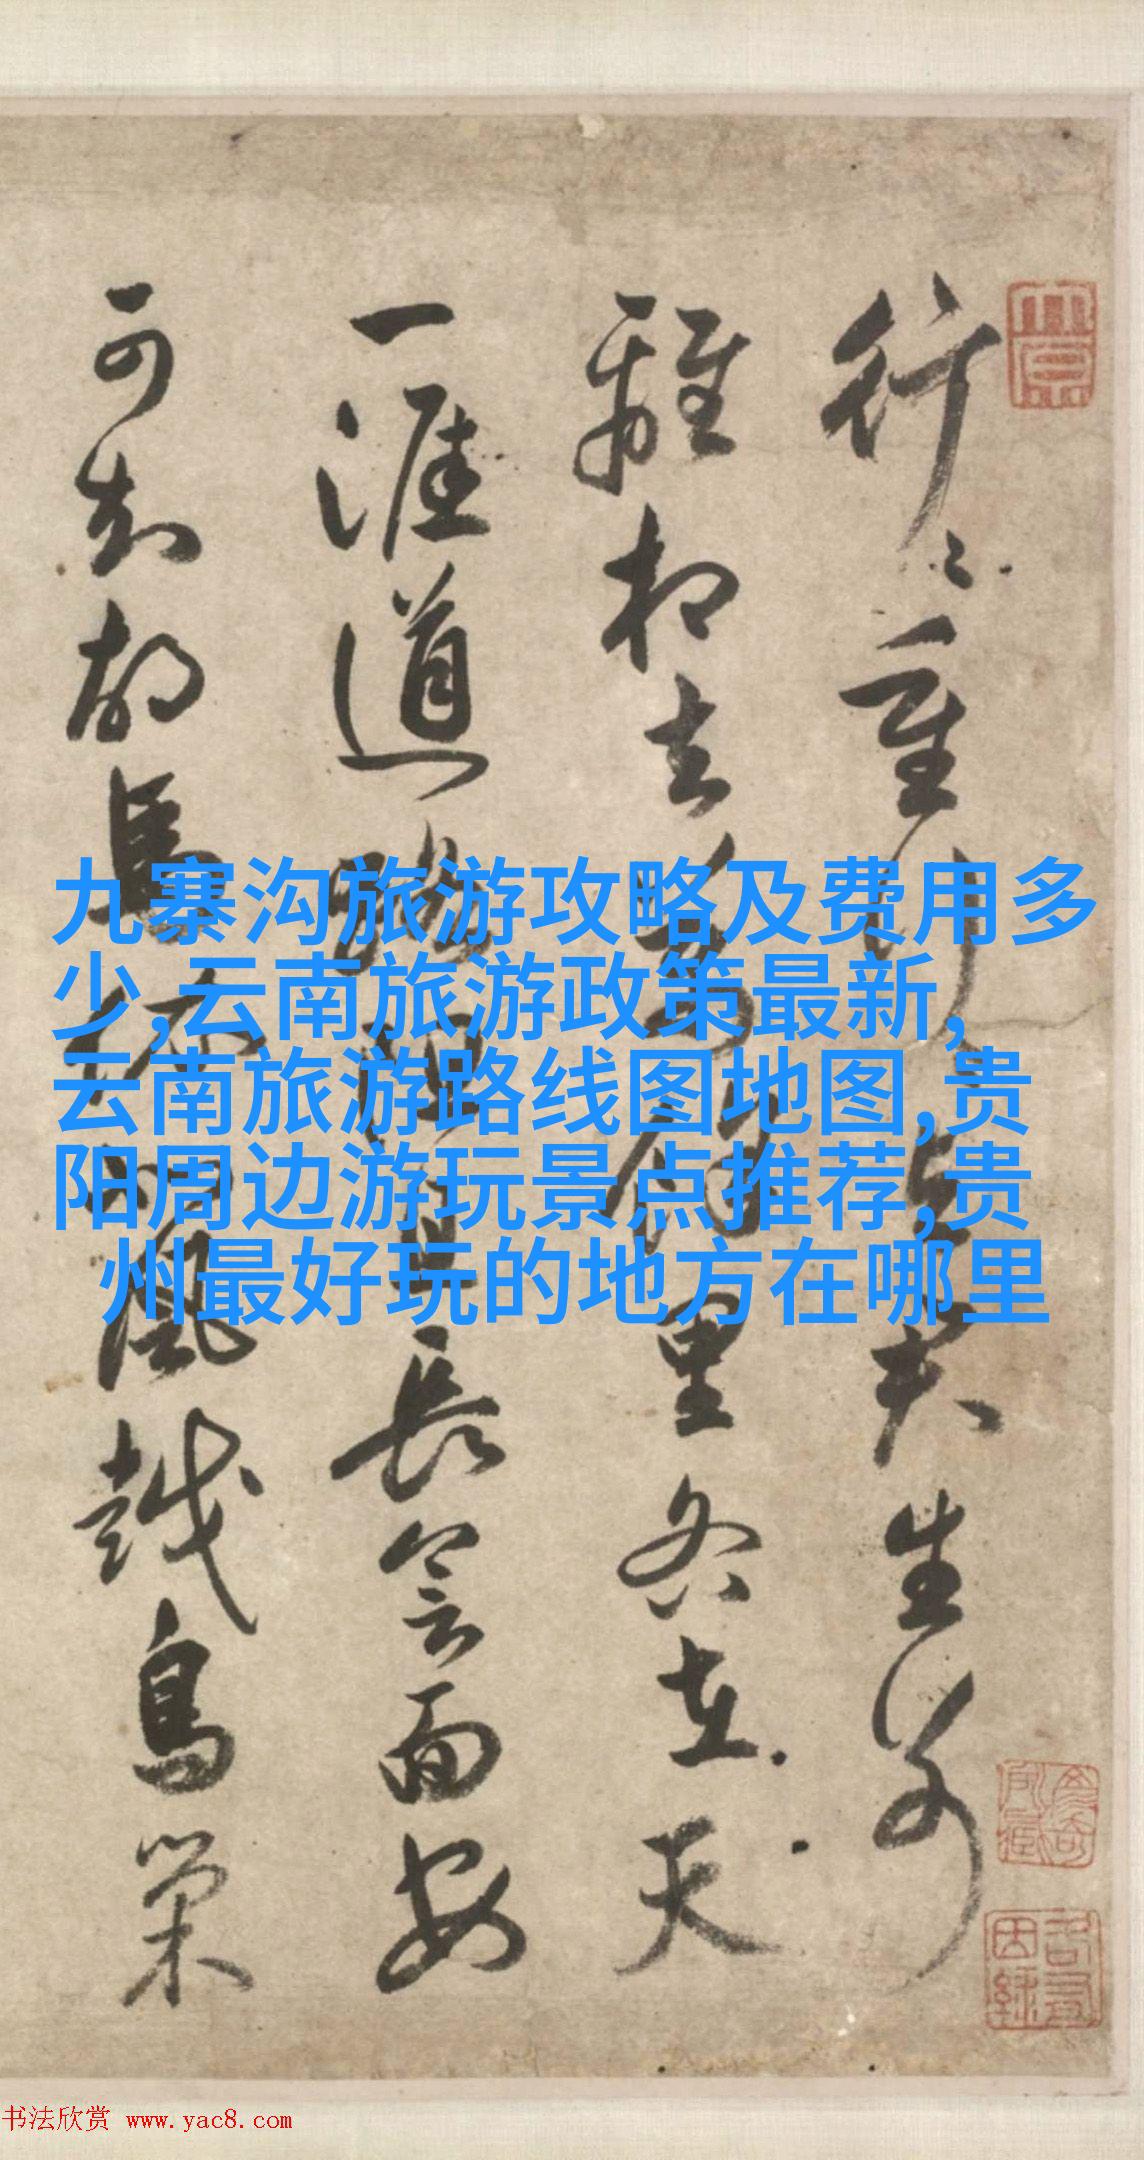 行〻重行〻与君生别
離相去萬餘里各在天
一涯道路阻且長會面安
可知胡馬依北風越鳥巢
九寨沟旅游攻略及费用多
少,云南旅游政策最新,
云南旅游路线图地图,贵
阳周边游玩景点推荐,贵
州最好玩的地方在哪里
书法欣赏 www.yac8.com